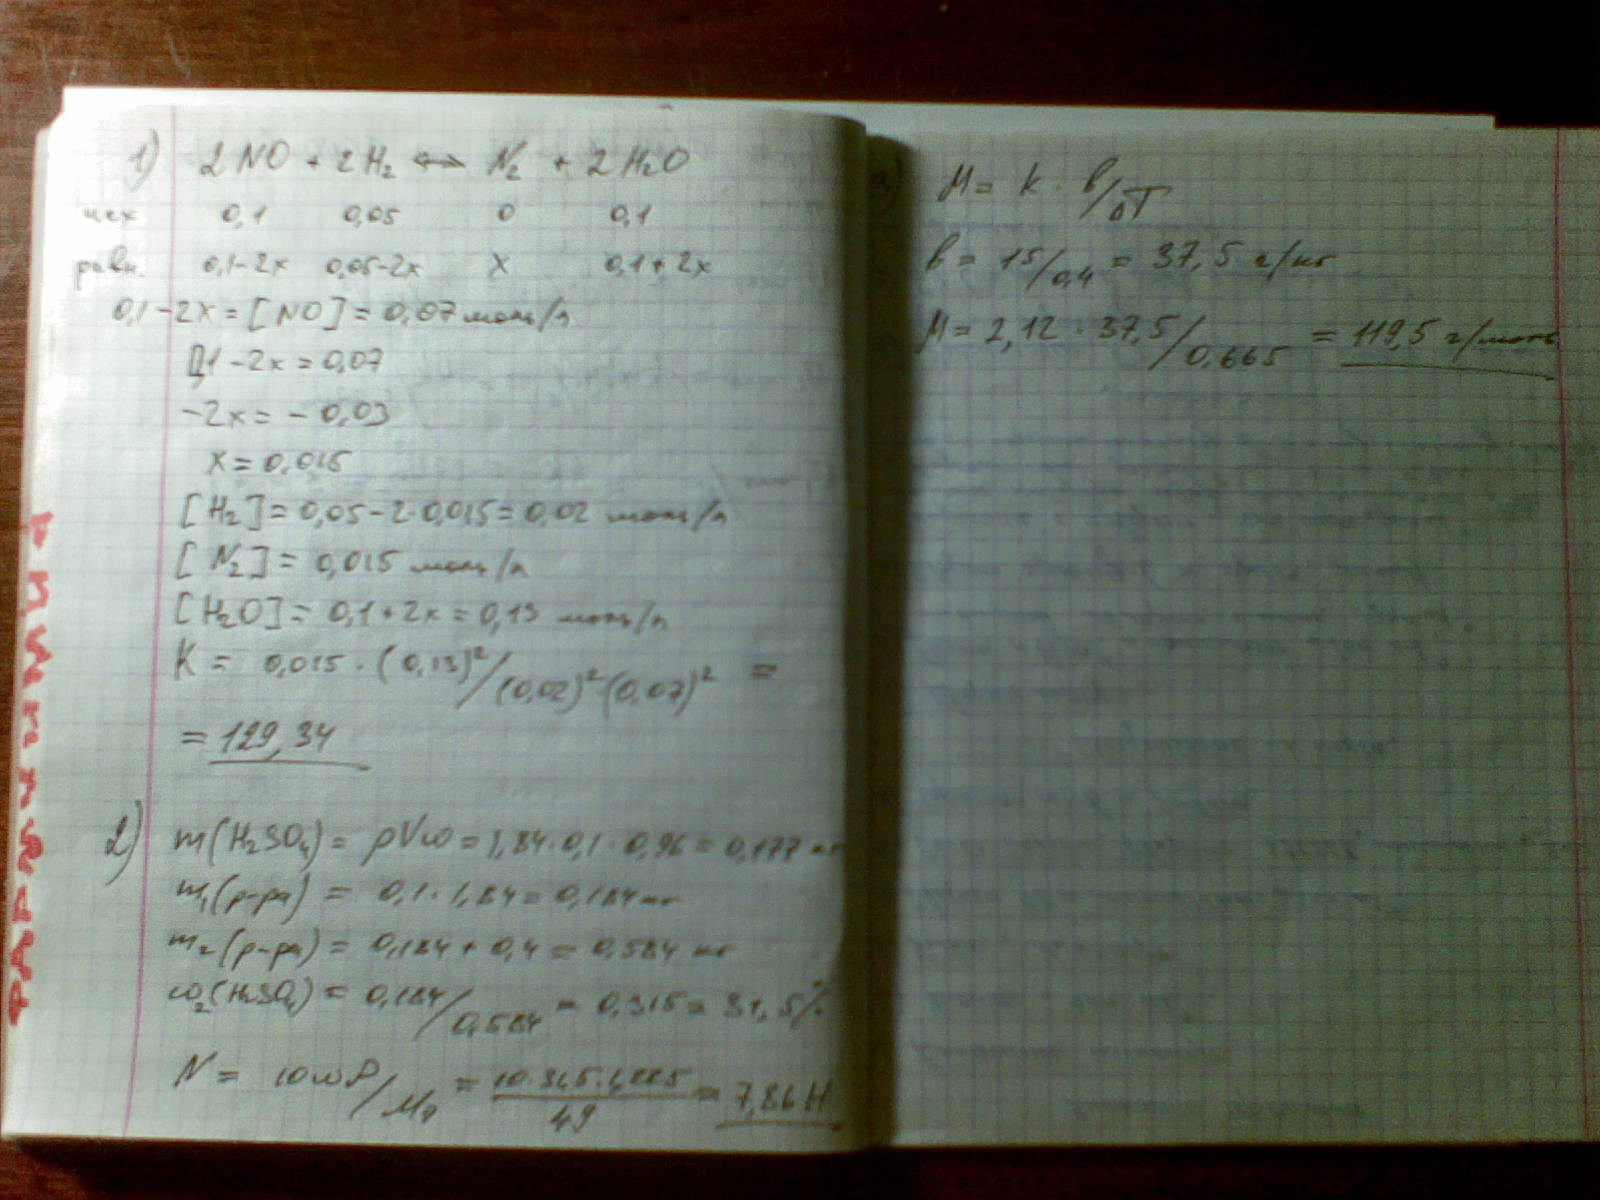 1) 2NO + 2H₂ ↔ N₂ + 2H₂O
исх 0,1 0,05 0 0,1
равн. 0,1-2x 0,05-2x X 0,1+2x
0,1-2x = [NO] = 0,07 моль/л
0,1-2x = 0,07
-2x = -0,03
x = 0,015
[H₂] = 0,05-2·0,015 = 0,02 моль/л
[N₂] = 0,015 моль/л
[H₂O] = 0,1+2x = 0,13 моль/л
K = 0,015·(0,13)²/(0,02)²(0,07)² =
= 129,34
2) m(H₂SO₄) = ρVω = 1,84·0,1·0,96 = 0,177 кг
m₁(р-ра) = 0,1·1,84 = 0,184 кг
m₂(р-ра) = 0,184 + 0,4 = 0,584 кг
ω₂(H₂SO₄) = 0,184/0,584 = 0,315 = 31,5%
N = 10ωρ/Mэ = = 7,86 Н
3) M = K · b/ΔT
b = 15/0,4 = 37,5 г/кг
M = 2,12·37,5/0,665 = 119,5 г/моль